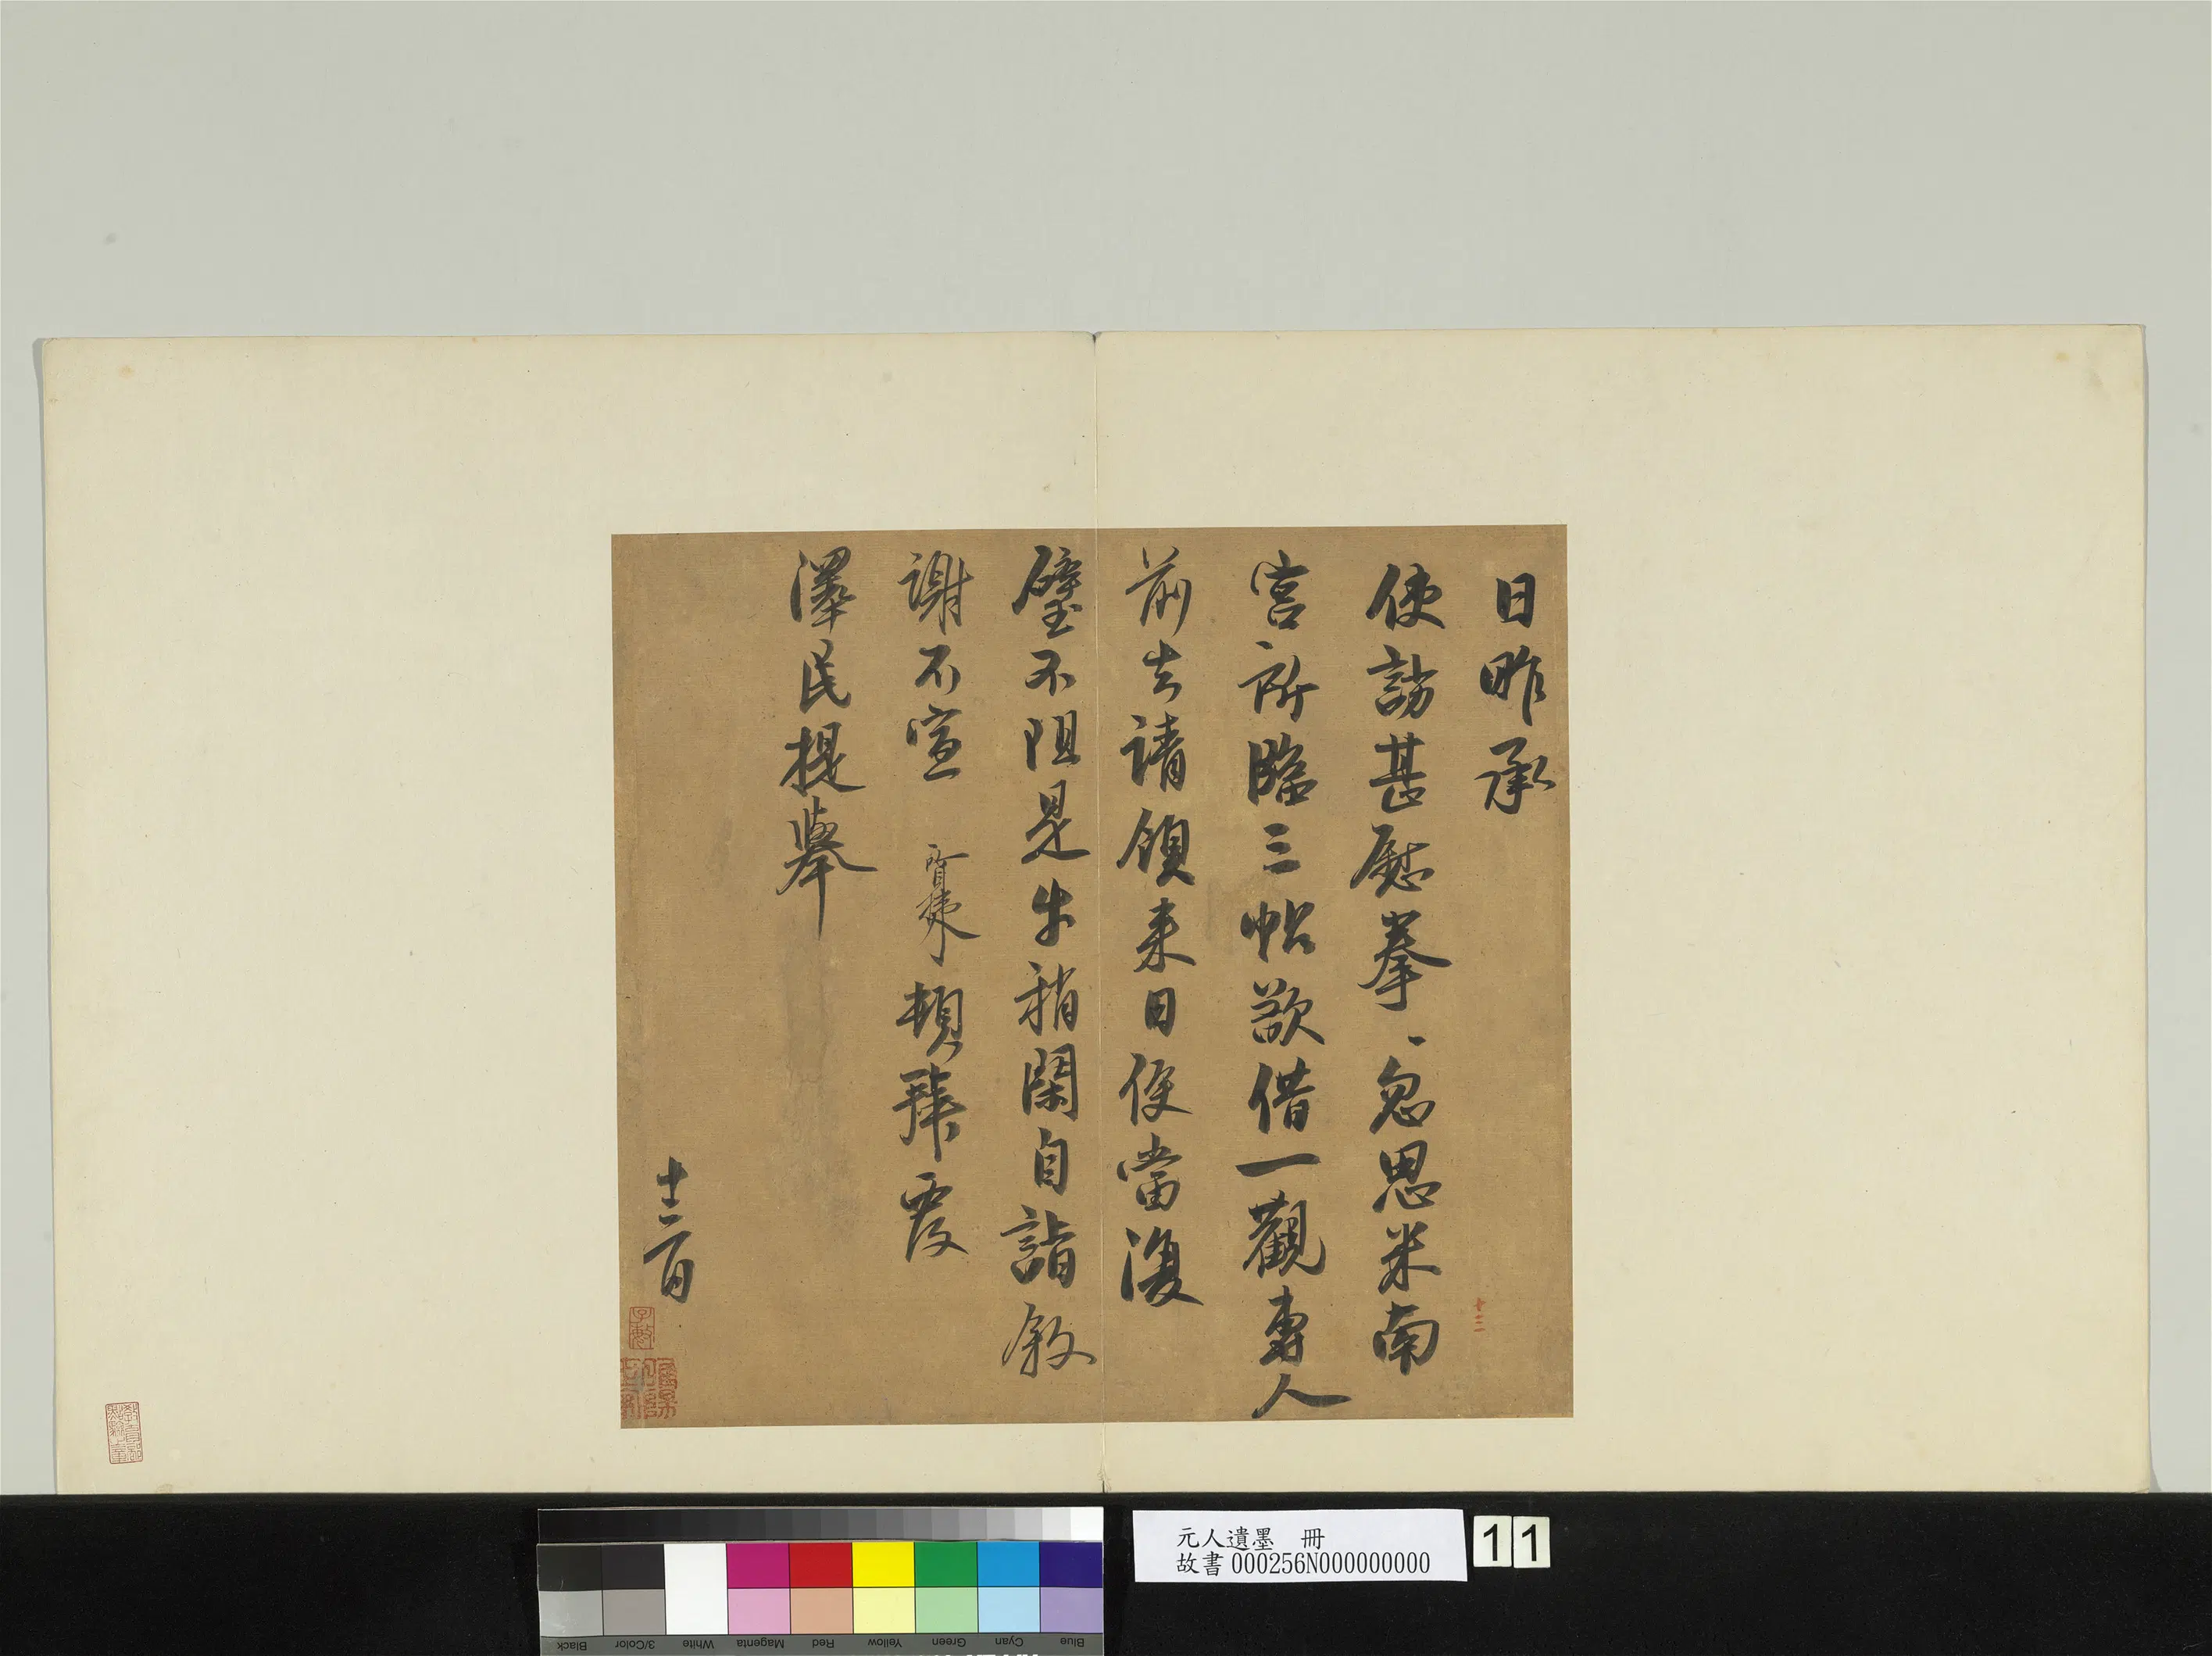 日昨承
使訪甚慰拳、忽思米南
宮所臨三帖欲借一觀專人
前去請領來日便當復
璧不阻是幸稍閑自詣敘
謝不宣 頓拜覆
澤民提舉
十二月
十三
元人遺墨 冊
故書000256N000000000
11
Black 3/Color White Magenta Red Yellow Green Cyan Blue